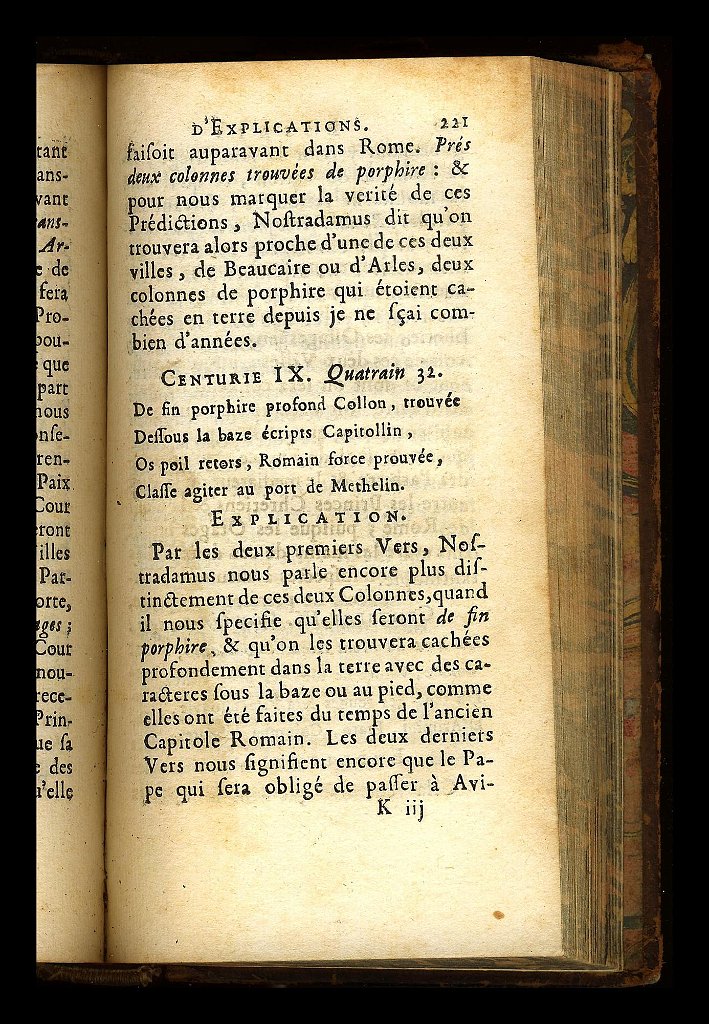 tant
ans-
vant
ans-
Ar-
e de
fera
Pro-
pou-
que
part
nous
onſe-
ren-
Paix
Cour
eront
illes
Par-
orte,
ages;
Cour
nou-
rece-
Prin-
ue ſa
e des
u'elle
D'EXPLICATIONS. 221
faiſoit auparavant dans Rome. Prés
deux colonnes trouvées de porphire : &
pour nous marquer la verité de ces
Prédictions, Noſtradamus dit qu'on
trouvera alors proche d'une de ces deux
villes, de Beaucaire ou d'Arles, deux
colonnes de porphire qui étoient ca-
chées en terre depuis je ne ſçai com-
bien d'années.
CENTURIE IX. Quatrain 32.
De fin porphire profond Collon, trouvée
Deſſous la baze écripts Capitollin,
Os poil retors, Romain force prouvée,
Claſſe agiter au port de Methelin.
EXPLICATION.
Par les deux premiers Vers, Noſ-
tradamus nous parle encore plus diſ-
tinctement de ces deux Colonnes, quand
il nous ſpecifie qu'elles ſeront de fin
porphire, & qu'on les trouvera cachées
profondement dans la terre avec des ca-
racteres ſous la baze ou au pied, comme
elles ont été faites du temps de l'ancien
Capitole Romain. Les deux derniers
Vers nous ſignifient encore que le Pa-
pe qui ſera obligé de paſſer à Avi-
K iij